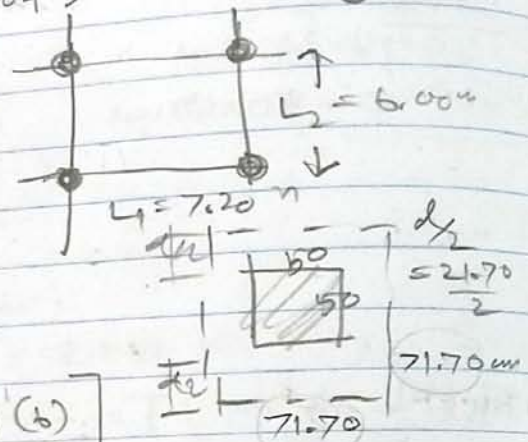 L₂ = 6.00 m
L₁ = 7.20 m
d/2
50
= 21.70
2
50
d/2
71.70 cm
(b)
71.70